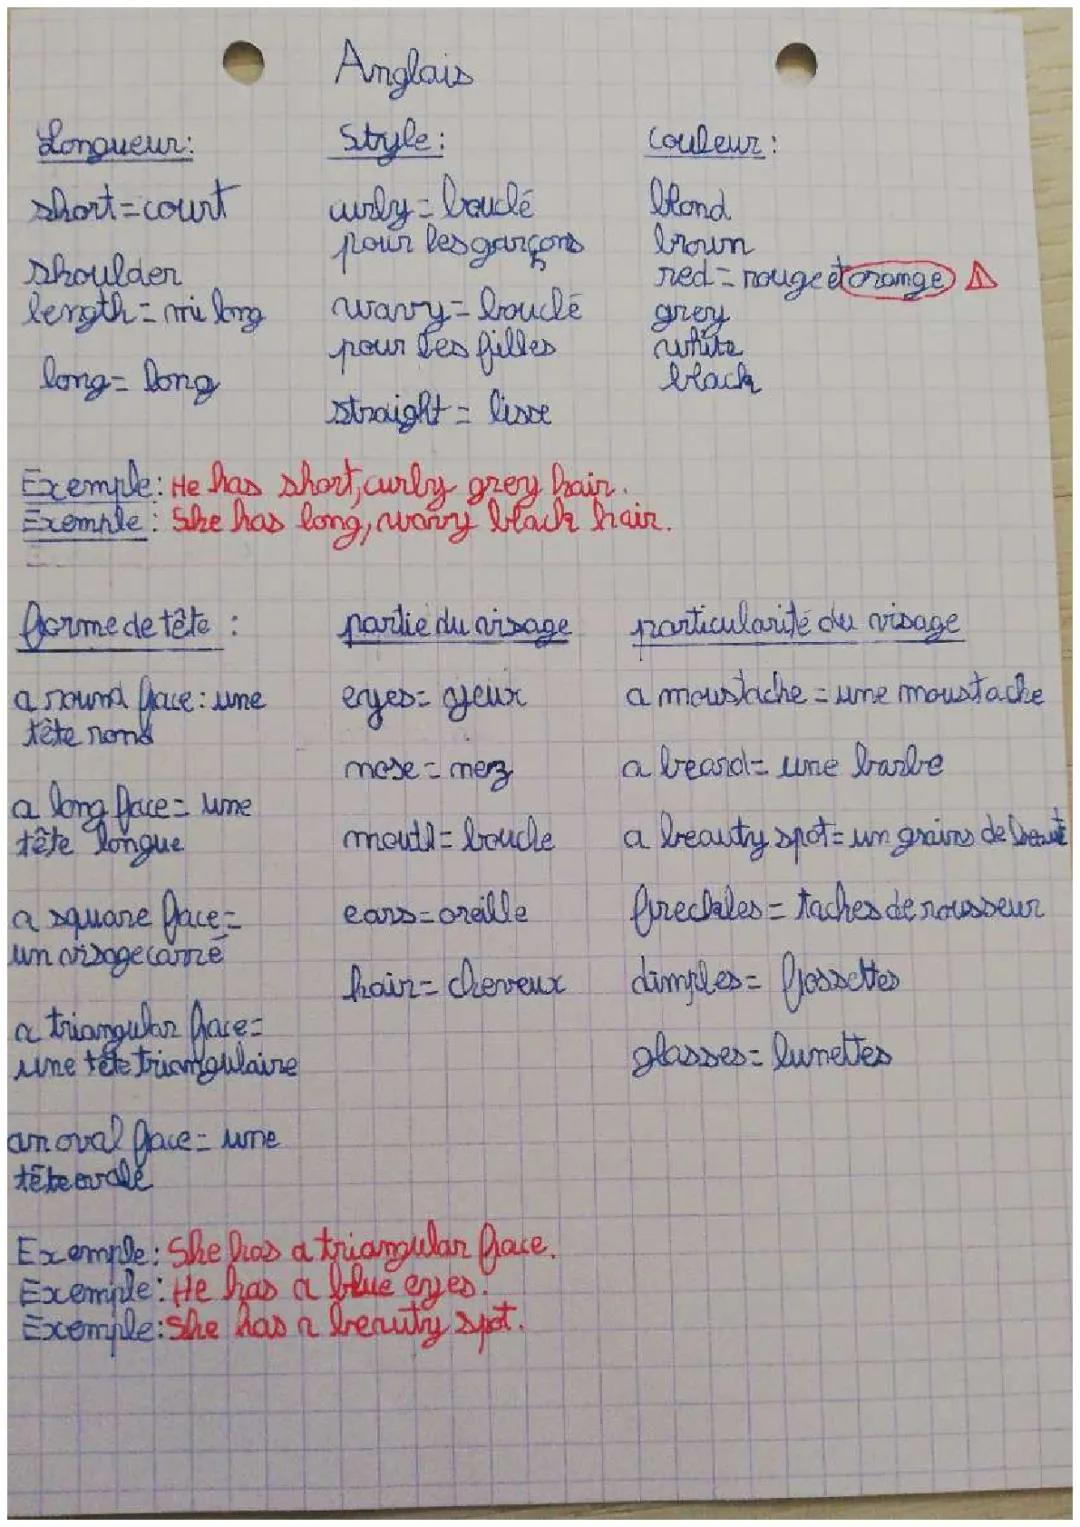 Anglais
Longueur:
short=court
shoulder
length=mi long
long=long
Style:
curly=bouclé
pour les garçons
wavy=bouclé
pour les filles
straight=lisse
Couleur:
blond
brown
red=rouge et orange
grey
white
black
Exemple: He has short, curly grey hair.
Exemple: She has long, wavy black hair.
forme de tête:
a round face: une
tête rond
a long face= une
tête longue
a square face=
un visage carré
a triangular face=
une tête triangulaire
an oval face= une
tête ovale
partie du visage
eyes= yeux
nose=nez
mouth=bouche
ears=oreille
hair=cheveux
particularité du visage
a moustache=une moustache
a beard=une barbe
a beauty spot=un grains de beauté
freckles=taches de rousseur
dimples=fossettes
glasses=lunettes
Exemple: She has a triangular face.
Exemple: He has a blue eyes.
Exemple: She has a beauty spot.